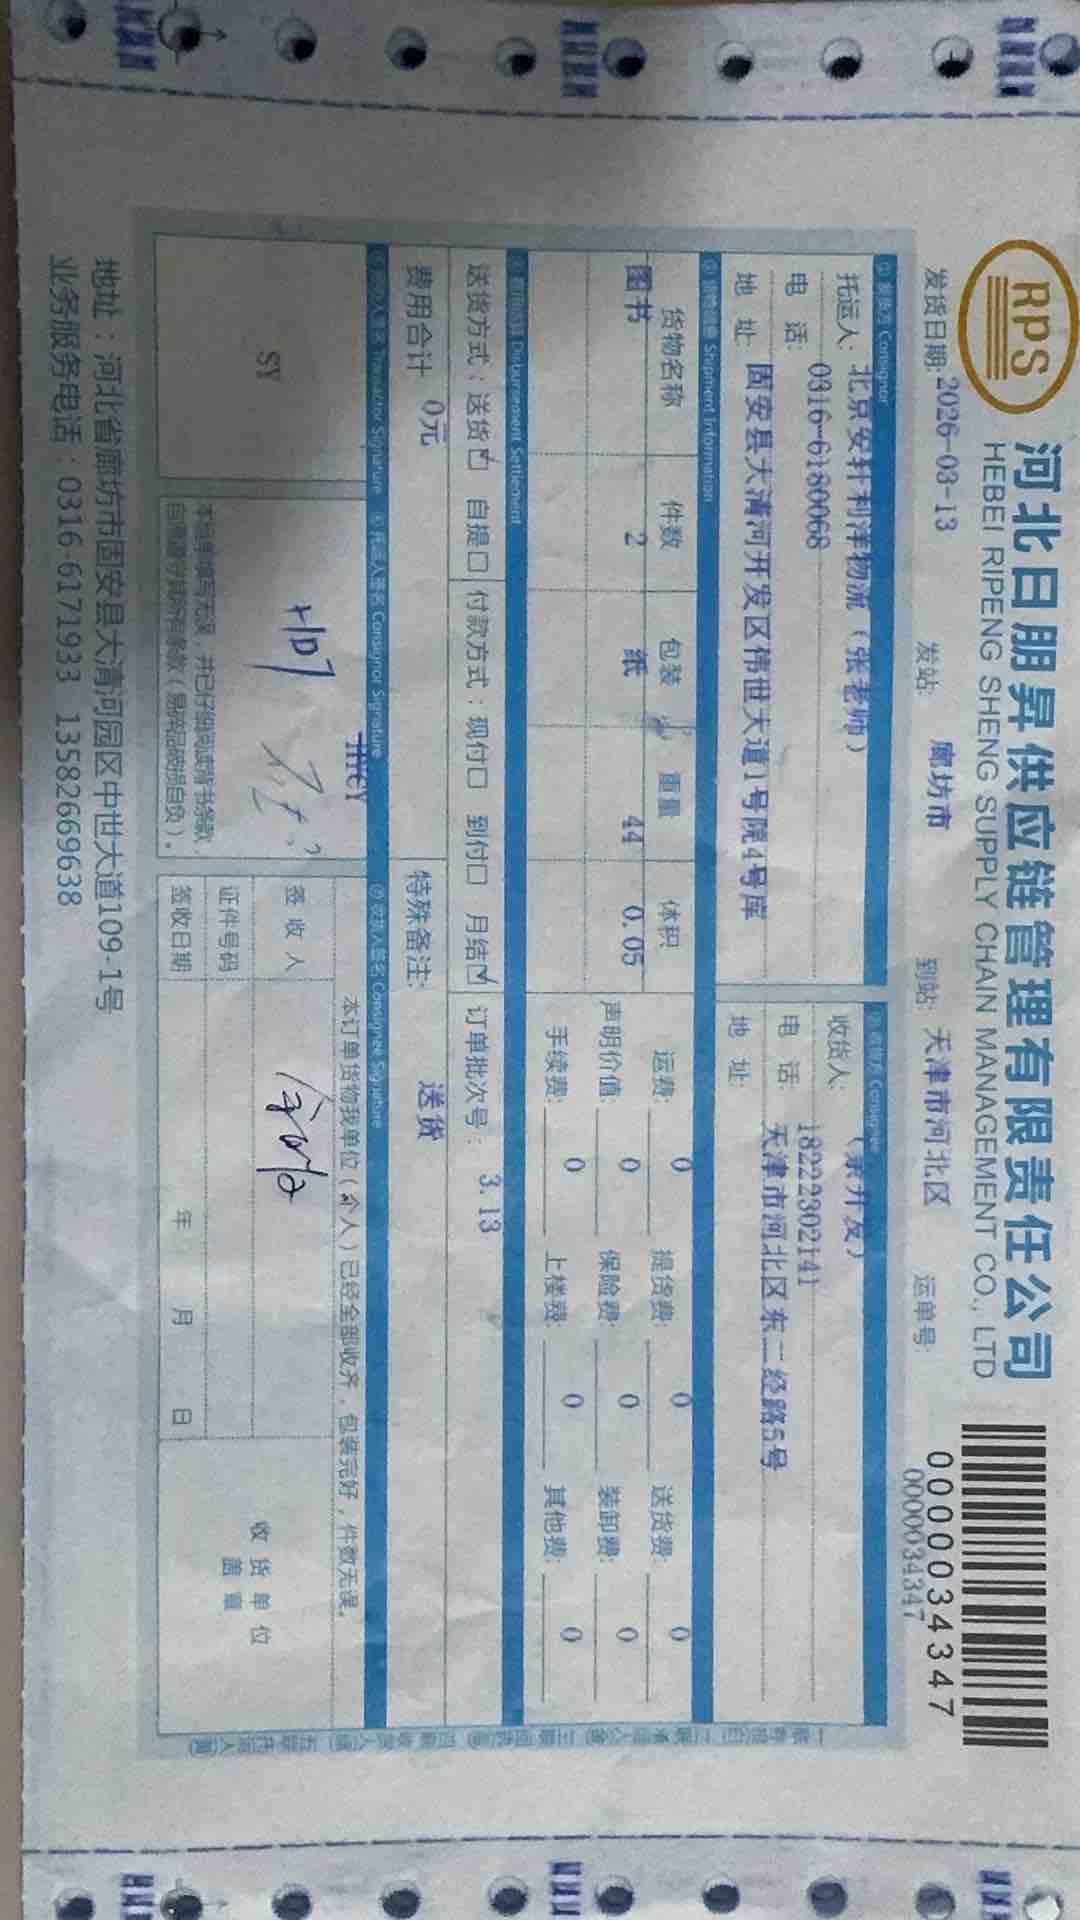 RPS
河北日朋昇供应链管理有限责任公司
HEBEI RIPENG SHENG SUPPLY CHAIN MANAGEMENT CO., LTD
发货日期: 2026-03-13 发站: 廊坊市 到站: 天津市河北区 运单号: 0000034347
0000034347
① 发货方 Consignor ② 收货方 Consignee
托运人: 北京安轩利洋物流（张老师） 收货人:
电 话: 0316-6180068 电 话: 18222302141
地 址: 固安县大清河开发区伟世大道1号院4号库 地 址: 天津市河北区东二经路5号
③ 货物信息 Shipment Information
货物名称 件数 包装 重量 体积 运费: 0 提货费: 0 送货费: 0
图书 2 纸 44 0.05 声明价值: 0 保险费: 0 装卸费: 0
手续费: 0 上楼费: 0 其他费: 0
Disbursement Settlement
送货方式：送货☑ 自提☐ 付款方式：现付☐ 到付☐ 月结☑ 订单批次号: 3.13
费用合计 0元 特殊备注: 送货
Transactor Signature ⑥ 托运人签名 Consignor Signature ⑦ 收货人签名 Consignee Signature
SY
本订单货物我单位（个人）已经全部收齐，包装完好，件数无误。
签 收 人
证件号码
签收日期 年 月 日
收货单位
盖章
本运单填写无误，并已仔细阅读背书条款，
自愿遵守其所有条款（易碎品破损自负）。
地址：河北省廊坊市固安县大清河园区中世大道109-1号
业务服务电话：0316-6171933 13582669638